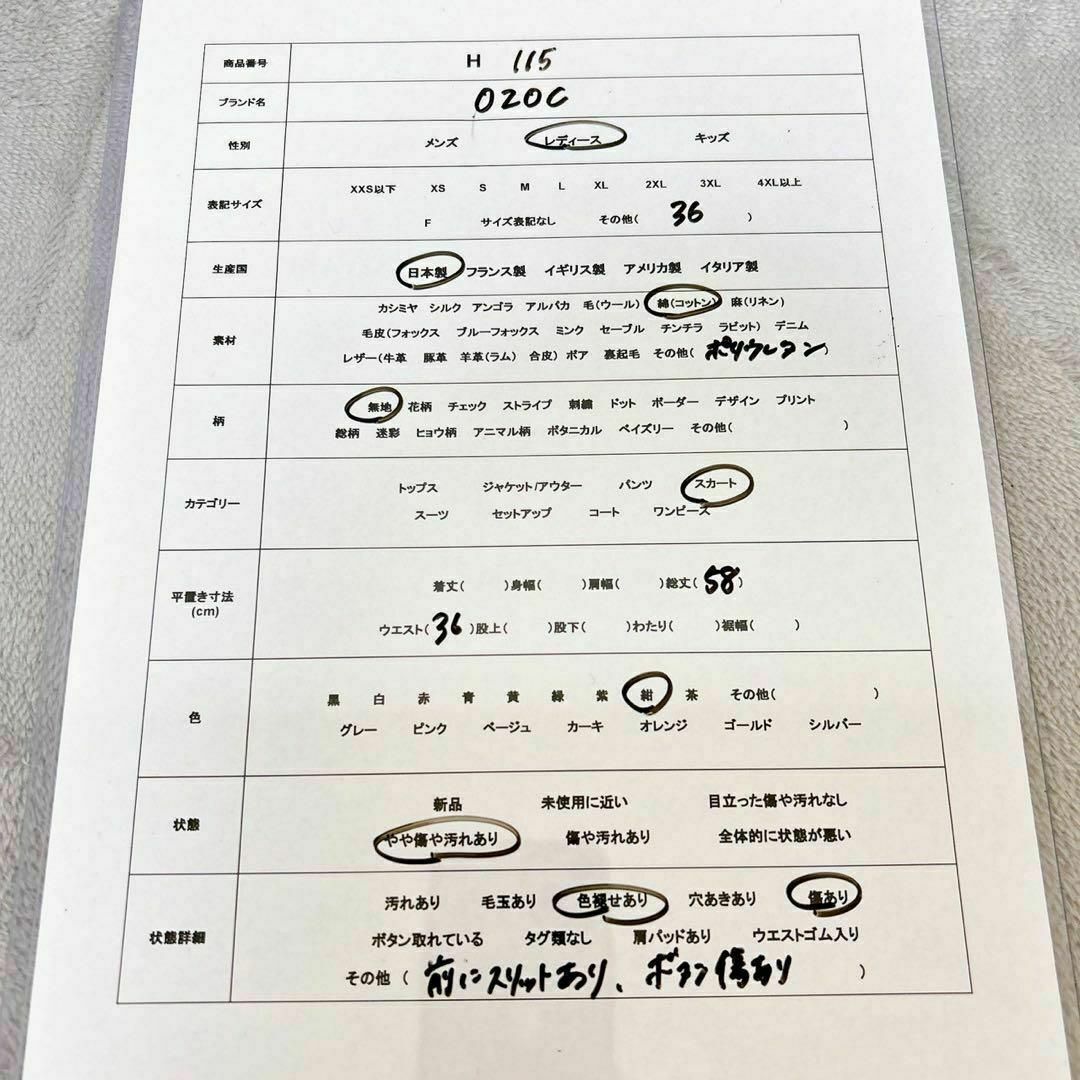 商品番号 H 115
ブランド名 OZOC
性別 メンズ レディース キッズ
XXS以下 XS S M L XL 2XL 3XL 4XL以上
表記サイズ
F サイズ表記なし その他( 36 )
生産国 日本製 フランス製 イギリス製 アメリカ製 イタリア製
カシミヤ シルク アンゴラ アルパカ 毛(ウール) 綿(コットン) 麻(リネン)
素材 毛皮(フォックス ブルーフォックス ミンク セーブル チンチラ ラビット) デニム
レザー(牛革 豚革 羊革(ラム) 合皮) ボア 裏起毛 その他( ポリウレタン )
無地 花柄 チェック ストライプ 刺繍 ドット ボーダー デザイン プリント
柄
総柄 迷彩 ヒョウ柄 アニマル柄 ボタニカル ペイズリー その他( )
トップス ジャケット/アウター パンツ スカート
カテゴリー
スーツ セットアップ コート ワンピース
着丈( )身幅( )肩幅( )総丈( 58 )
平置き寸法
(cm)
ウエスト( 36 )股上( )股下( )わたり( )裾幅( )
黒 白 赤 青 黄 緑 紫 紺 茶 その他( )
色
グレー ピンク ベージュ カーキ オレンジ ゴールド シルバー
新品 未使用に近い 目立った傷や汚れなし
状態
やや傷や汚れあり 傷や汚れあり 全体的に状態が悪い
汚れあり 毛玉あり 色褪せあり 穴あきあり 傷あり
状態詳細 ボタン取れている タグ類なし 肩パッドあり ウエストゴム入り
その他 ( 前にスリットあり、ボタン傷あり )